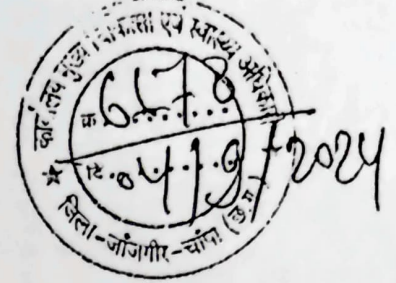 कार्यालय मुख्य चिकित्सा एवं स्वास्थ्य अधिकारी
क्र. 6178
दि. 04/9/2024
जिला-जांजगीर-चांपा (छ.ग.)